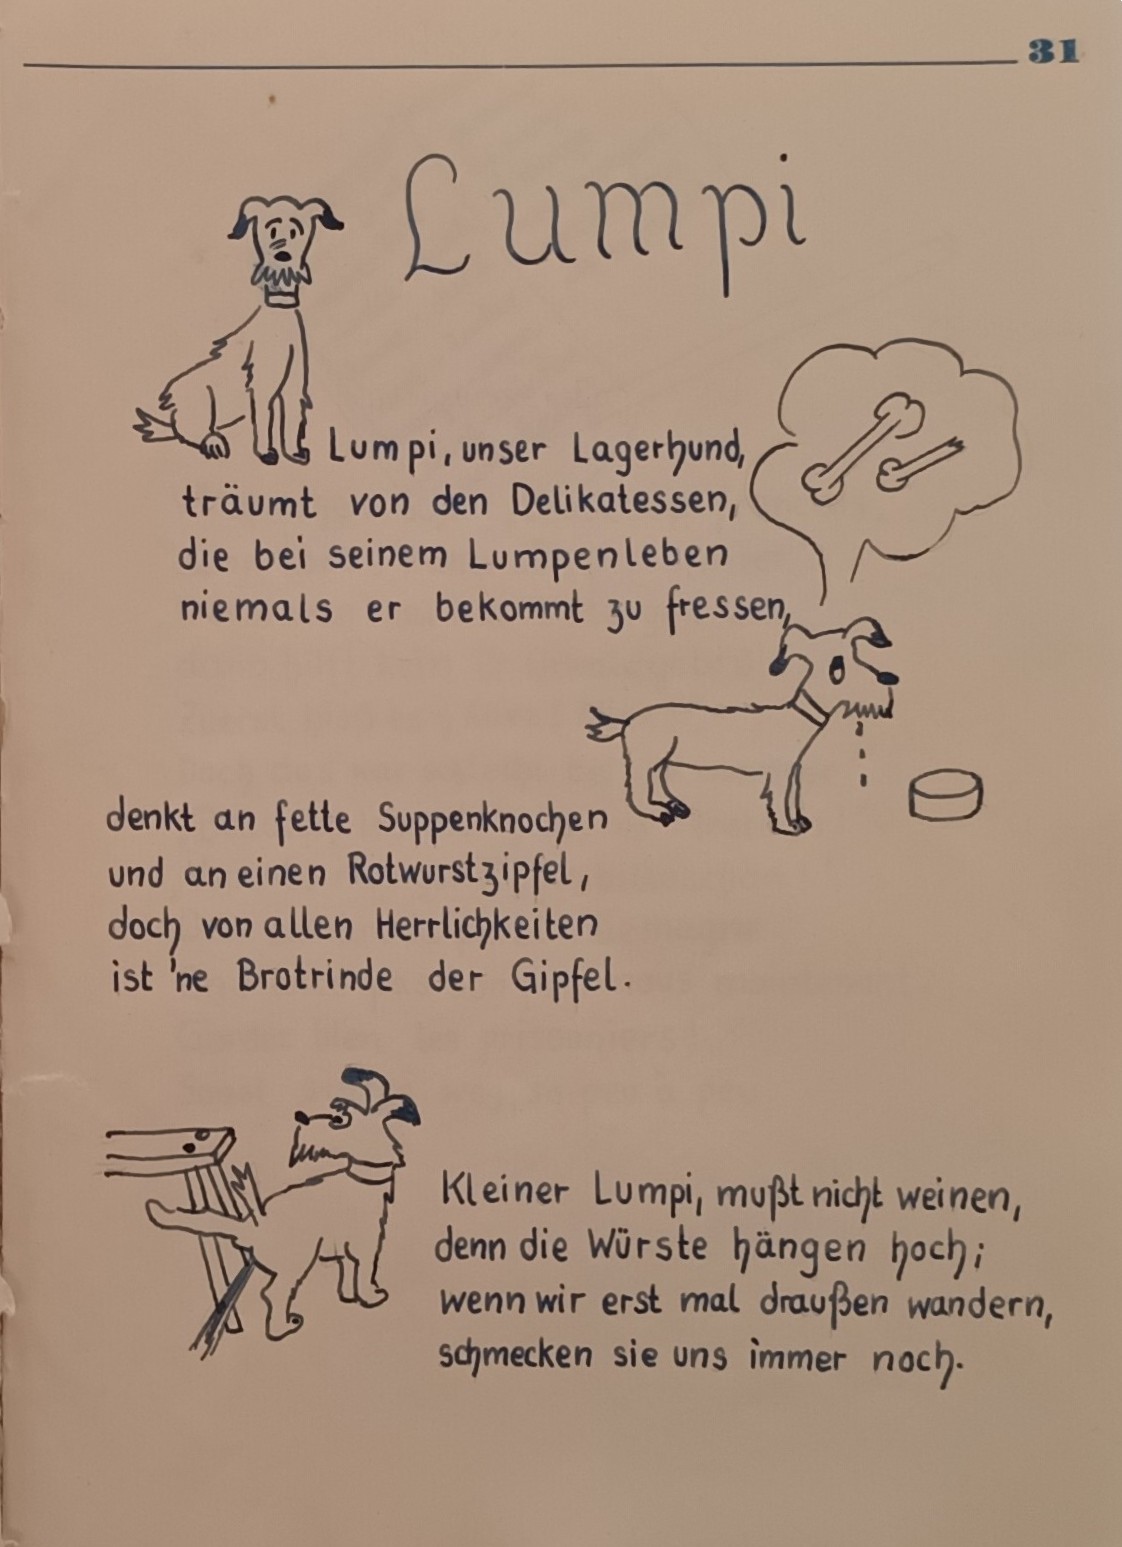 31
Lumpi
Lumpi, unser Lagerhund,
träumt von den Delikatessen,
die bei seinem Lumpenleben
niemals er bekommt zu fressen,
denkt an fette Suppenknochen
und an einen Rotwurstzipfel,
doch von allen Herrlichkeiten
ist 'ne Brotrinde der Gipfel.
Kleiner Lumpi, mußt nicht weinen,
denn die Würste hängen hoch;
wenn wir erst mal draußen wandern,
schmecken sie uns immer noch.